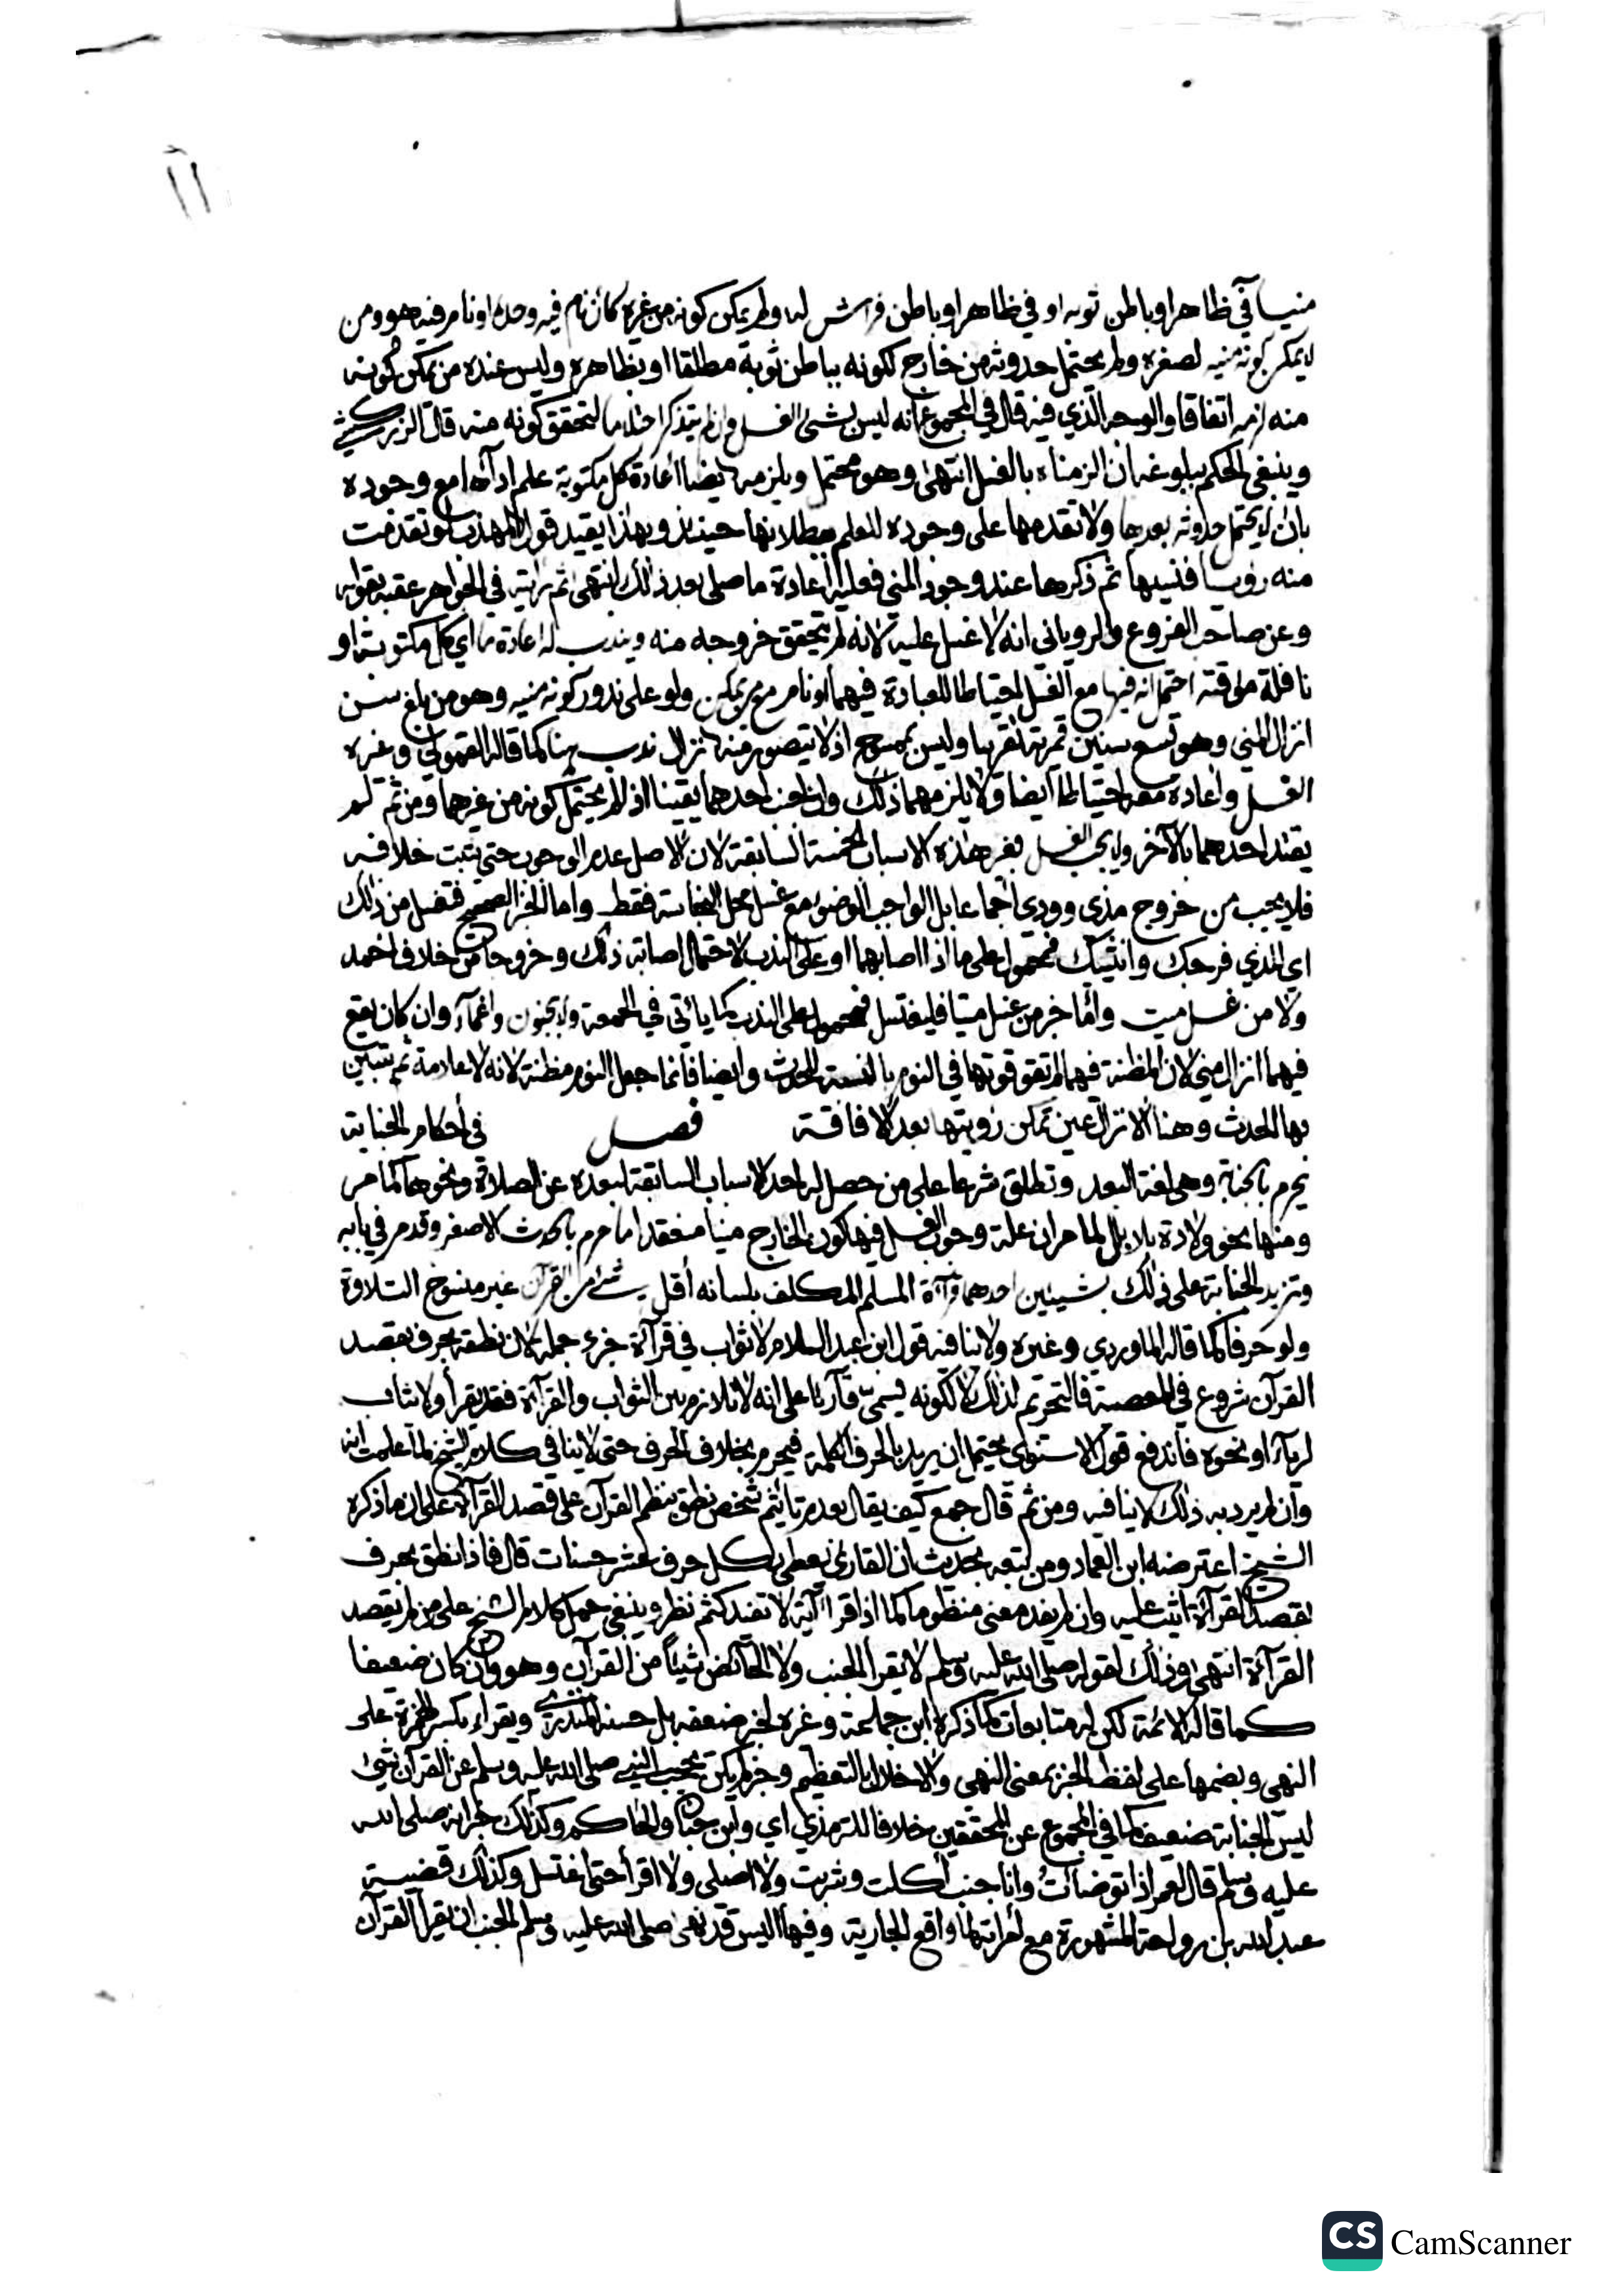 ١١
منيا في ظاهر او باطن ثوبه او في ظاهر او باطن فراش له ولم يمكن كونه من غيره كأن نام فيه وحده او نام فيه هو ومن
لا يمكن كونه منيه لصغره ولم يحتمل حدوثه من خارج لكونه بباطن ثوبه مطلقا او بظاهره وليس عنده من يمكن كونه
منه لزمه اتفاقا والوجه الذي فيه قال في المجموع انه ليس بشئ الغسل وان لم يتذكر احتلاما لتحقق كونه منه قال الزركشي
وينبغي الحكم ببلوغه ان الزمناه بالغسل انتهى وهو محتمل ويلزمه ايضا اعادة كل مكتوبة علم اداءها مع وجوده
بان لا يحتمل حدوثه بعدها ولا تقدمها على وجوده للعلم ببطلانها حينئذ وبهذا يقيد قول المهذب لو تقدمت
منه رؤيا فنسيها ثم ذكرها عند وجود المني فعليه اعادة ما صلى بعد ذلك انتهى ثم رأيته في الجواهر عقبه بقوله
وعن صاحب الفروع والروياني انه لا غسل عليه لانه لم يتحقق خروجه منه ويندب له اعادة ما اي كل مكتوبة او
نافلة مؤقتة احتمل انه فيها مع الغسل احتياطا للعبادة فيهما او نام مع من يمكن ولو على ندور كونه منيه وهو من بلغ سن
انزال المني وهو تسع سنين قمرية تقريبا وليس بممسوح اذ لا يتصور منه انزال ندب لهما كما قاله القمولي وغيره
الغسل واعادة معه احتياطا ايضا ولا يلزمهما ذلك وان اجنب احدهما يقينا اذ لم يحتمل كونه من غيرهما ومن ثم لم
يقتد احدهما بالآخر ولا يجب الغسل بغير هذه الاسباب الخمسة السابقة لان الاصل عدم الوجوب حتى يثبت خلافه
فلا يجب من خروج مذي وودي اجماعا بل الواجب الوضوء مع غسل محل النجاسة فقط واما الخبر الصحيح فتغسل من ذلك
اي المذي فرجك وانثييك فمحمول على ما اذا اصابهما او على الندب لاحتمال اصابة ذلك وخروجا من خلاف احمد
ولا من غسل ميت واما خبر من غسل ميتا فليغتسل فمحمول على الندب كما يأتي في الجمعة ولا بجنون واغماء وان كان يقع
فيهما انزال مني لان المظنة فيهما لم تقو قوتها في النوم بالنسبة للحدث وايضا فانما جعل النوم مظنة لانه لا علامة ثم يتبين
بها الحدث وهنا الانزال عين تمكن رؤيتها بعد الافاقة فصل في أحكام الجنابة
يحرم بالجنابة وهي لغة البعد وتطلق شرعا على من حصل له احد الاسباب السابقة لبعده عن الصلاة ونحوها كما مر
ومنها نحو ولادة بلا بلل لما مر ان علة وجوب الغسل فيها كون الخارج منيا منعقدا ما حرم بالحدث الاصغر وقد مر في بابه
وتزيد الجنابة على ذلك بشيئين احدهما قراءة المسلم المكلف بلسانه أقل شئ من القرآن غير منسوخ التلاوة
ولو حرفا كما قاله الماوردي وغيره ولا ينافيه قول ابن عبد السلام لا ثواب في قراءة جزء جملة لان نطقه بحرف بقصد
القرآن شروع في المعصية فالتحريم لذلك لا لكونه يسمى قارئا على انه لا تلازم بين الثواب والقراءة فقد يقرأ ولا يثاب
لرياء او نحوه فاندفع قول الاسنوي يحتمل ان يريد بالحرف الكلمة فيحرم بخلاف الحرف حتى لا ينافي كلام الشيخ لما علمت انه
وان لم يرد به ذلك لا ينافيه ومن ثم قال جمع كيف يقال بعدم تأثيم شخص نطق بنظم القرآن على قصد القراءة على ان ما ذكره
الشيخ اعترضه ابن العماد ومن تبعه بحديث ان القارئ يعطى بكل حرف عشر حسنات قال فاذا نطق بحرف
بقصد القراءة اثيب عليه وان لم يفد معنى منظوما كما اذا قرأ آية لا تفيد كثم نظر وينبغي حمل كلام الشيخ على من لم يقصد
القراءة انتهى وذلك لقوله صلى الله عليه وسلم لا يقرأ الجنب ولا الحائض شيئا من القرآن وهو وان كان ضعيفا
كما قاله الائمة لكن له متابعات كما ذكره ابن جماعة وغيره تجبر ضعفه بل حسنه المنذري ويقرأ بكسر الهمزة على
النهي وبضمها على لفظ الخبر بمعنى النهي والاخلال بالتعظيم وخبر لم يكن يحجب النبي صلى الله عليه وسلم عن القرآن شئ
ليس الجنابة ضعيف كما في المجموع عن المحققين خلافا للترمذي اي وابن حبان والحاكم وكذلك خبر انه صلى الله
عليه وسلم قال لعمر اذا توضأت وانا جنب أكلت وشربت ولا اصلي ولا اقرأ حتى اغتسل وكذلك قضية
عبد الله بن رواحة المشهورة مع امرأته لما واقع الجارية وفيها اليس قد نهى صلى الله عليه وسلم الجنب ان يقرأ القرآن
CS CamScanner